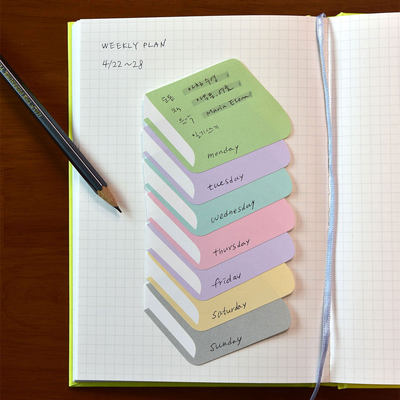 WEEKLY PLAN
4/22~28
운동
책
드라마
일기쓰기
monday
tuesday
wednesday
thursday
friday
saturday
sunday